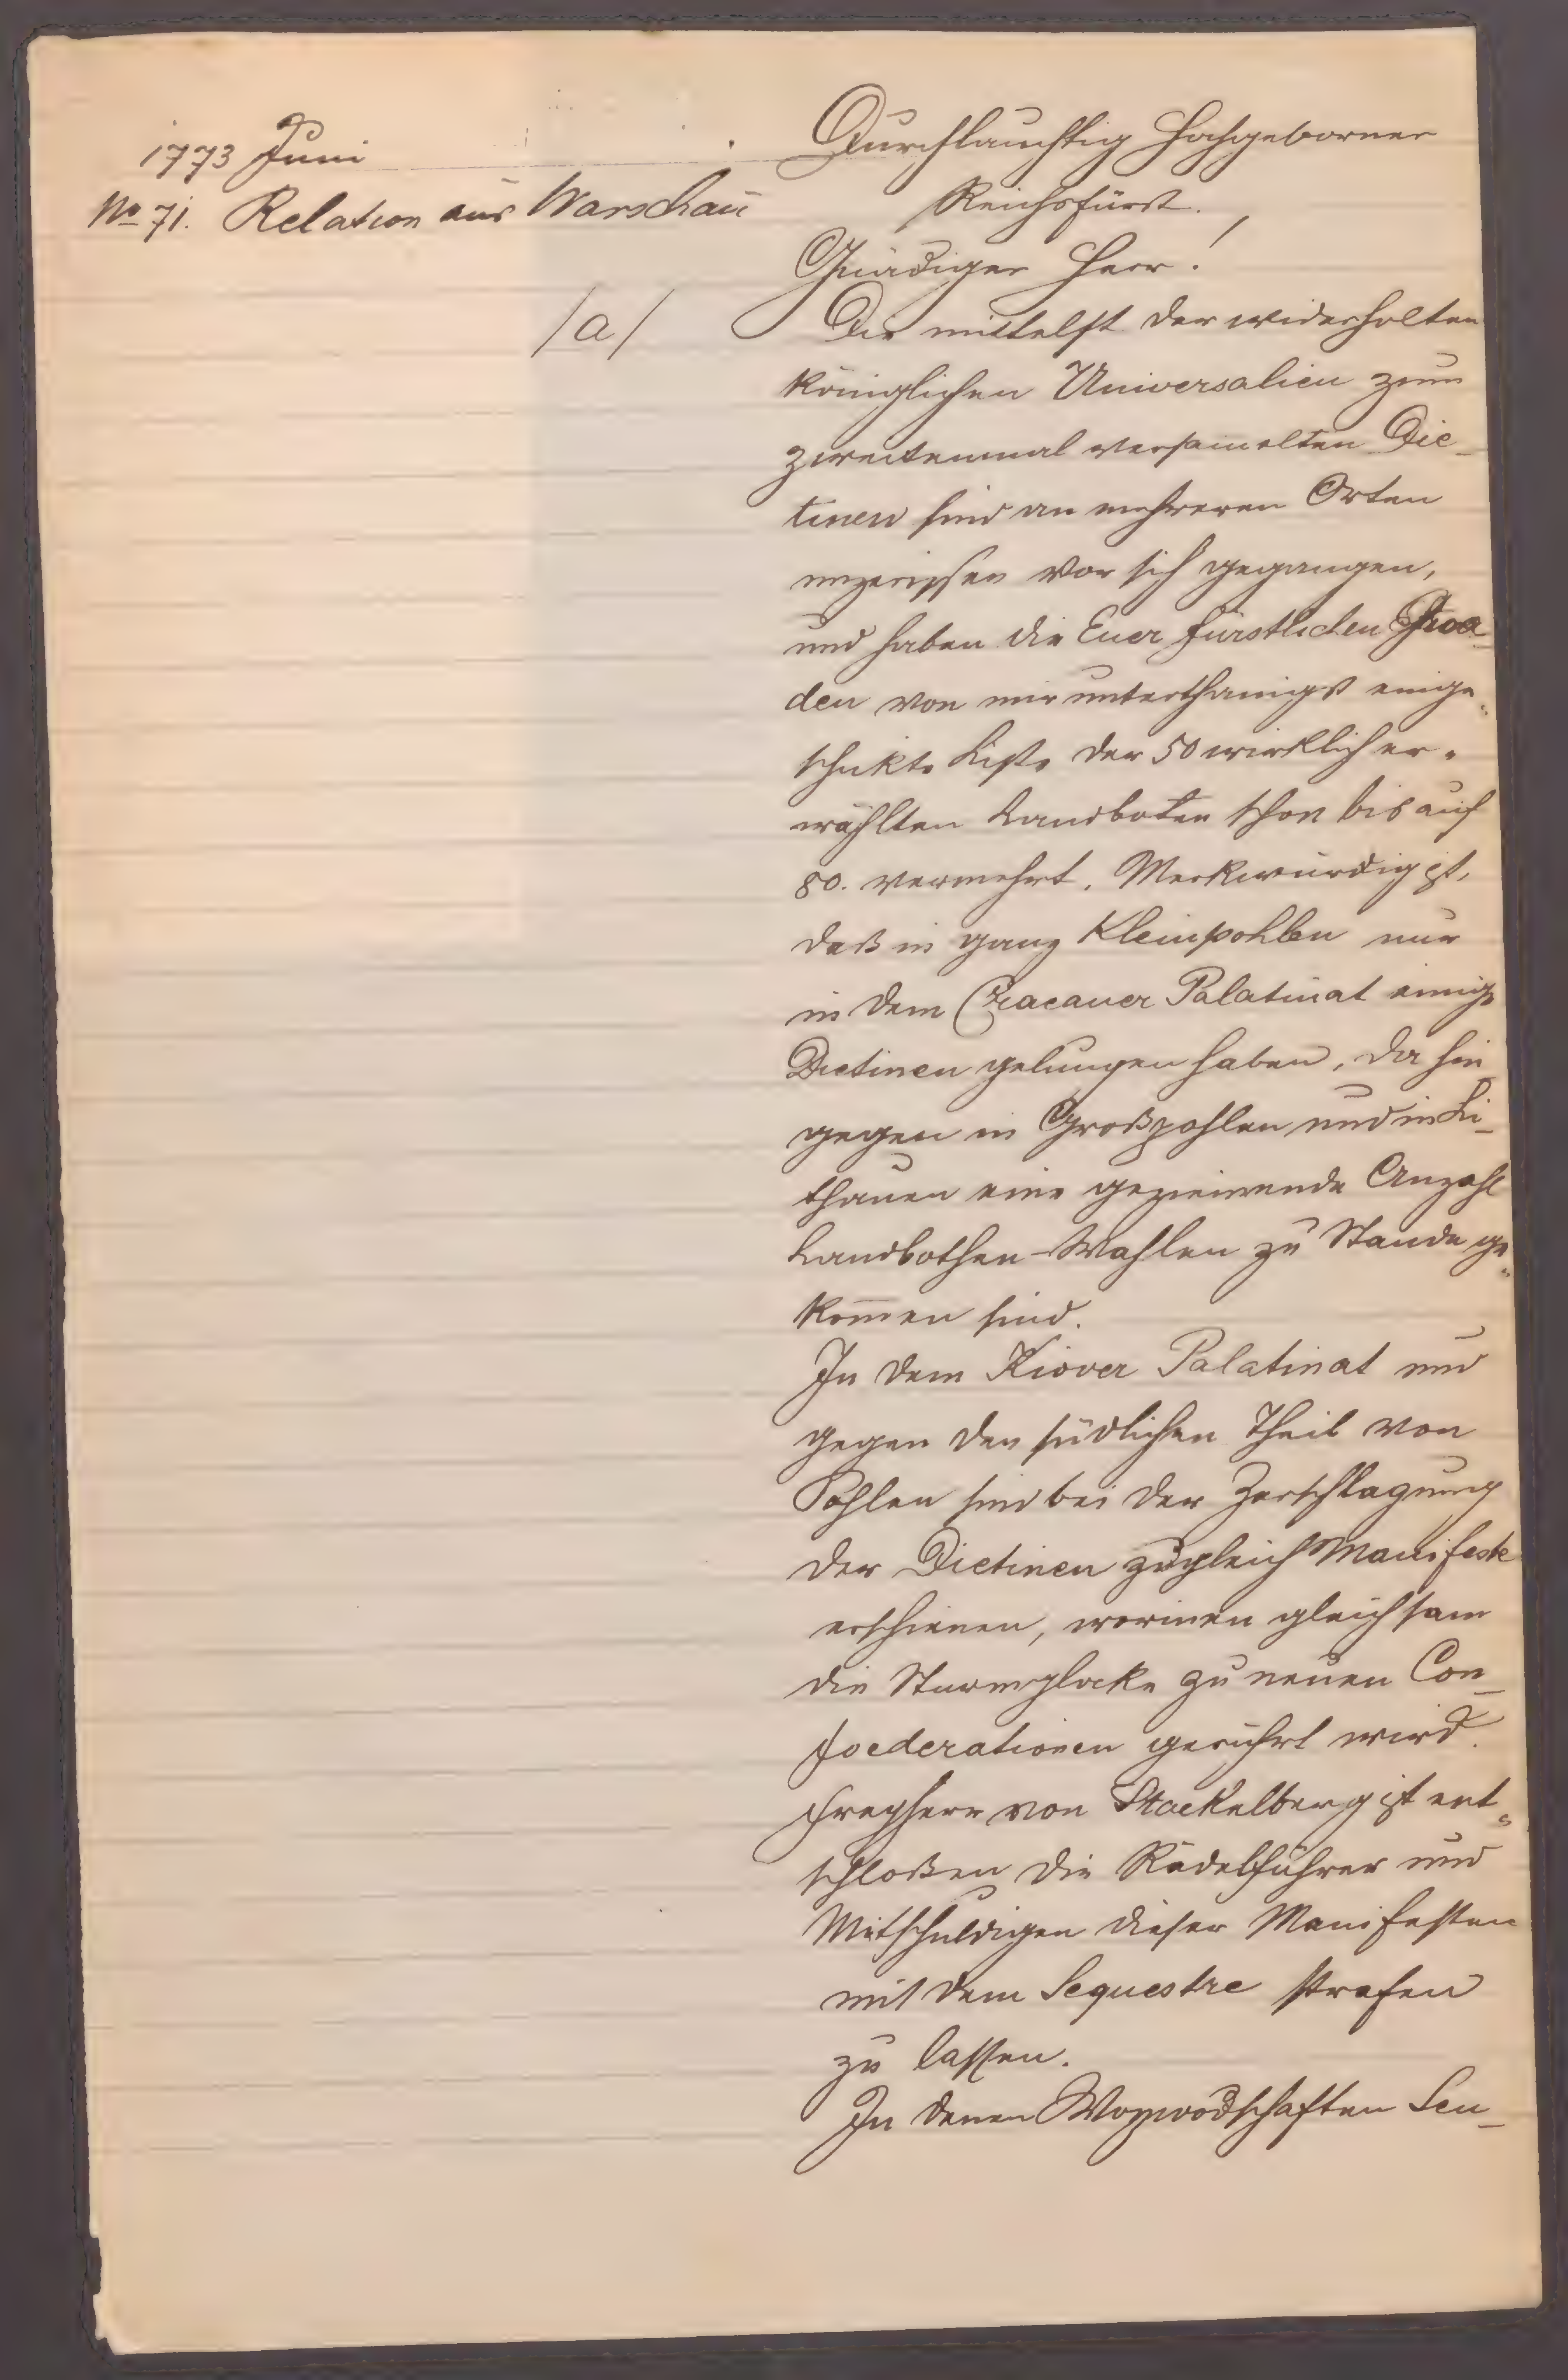 1773 Juni
No 71. Relation aus Warschau
/a/
Durchlauchtig Hochgeborner
Reichsfürst.
Gnädiger Herr!
Die mittelst der widerholten
königlichen Universalien zum
zweitenmal versamelten Die-
tinen sind an mehreren Orten
unzerissen vor sich gegangen,
und haben die Euer fürstlichen Gna-
den von mir unterthänigst einge-
schickte Liste der 50 wirklich er-
wählten Landboten schon bis auf
80. vermehrt. Merkwürdig ist,
daß in ganz Kleinpohlen nur
in dem Cracauer Palatinat einige
Dietinen gelungen haben, da hin-
gegen in Großpohlen und in Li-
thauen eine geziemende Anzahl
Landbothen-Wahlen zu Stande ge-
kommen sind.
In dem Kiover Palatinat und
gegen den südlichen Theil von
Pohlen sind bei der Zerschlagung
der Dietinen zugleich Manifeste
erschienen, worinen gleichsam
die Sturmglocke zu neuen Con-
foederationen gerührt wird.
Freyherr von Stackelberg ist ent-
schloßen die Rädelführer und
Mitschuldigen dieser Manifesten
mit dem Sequestre strafen
zu lassen.
In denen Woywodschaften Sen-